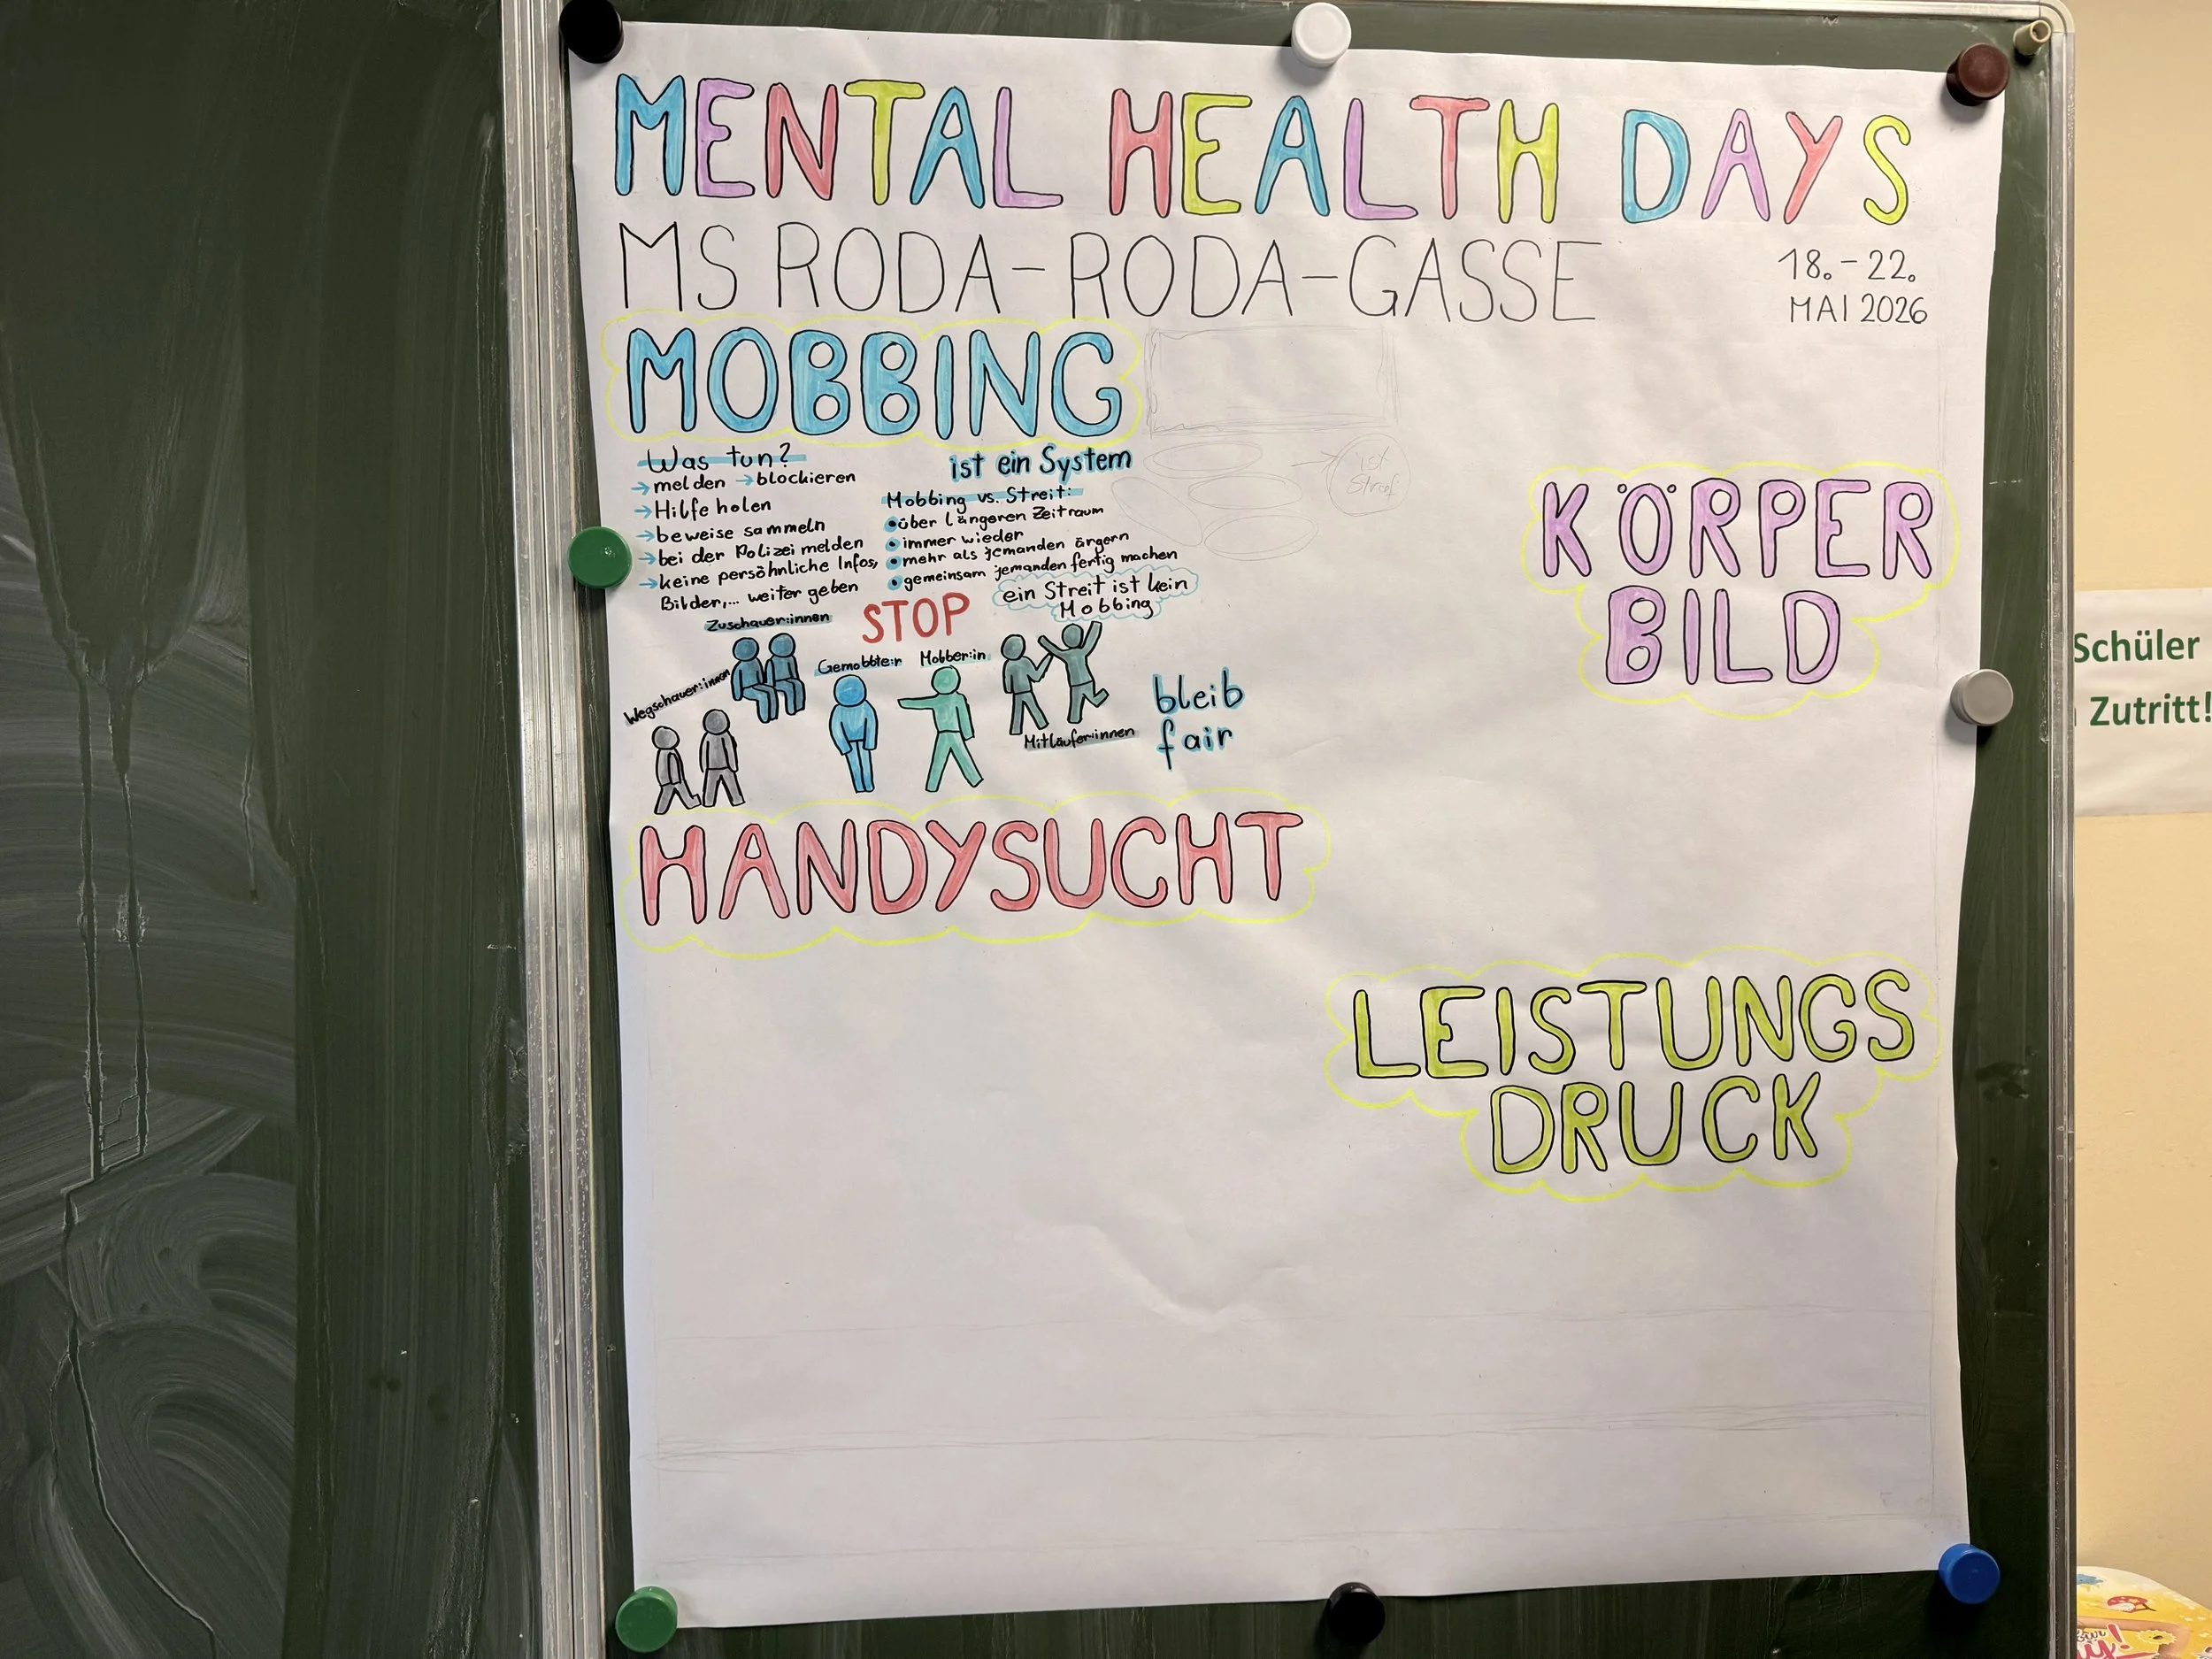 MENTAL HEALTH DAYS
MS RODA-RODA-GASSE
18.-22.
MAI 2026
MOBBING
ist ein System
Was tun?
→ melden → blockieren
→ Hilfe holen
→ beweise sammeln
→ bei der Polizei melden
→ keine persöhnliche Infos,
Bilder,... weiter geben
Mobbing vs. Streit:
• über längeren Zeitraum
• immer wieder
• mehr als jemanden ärgern
• gemeinsam jemanden fertig machen
ein Streit ist kein
Mobbing
STOP
Zuschauer:innen
Wegschauer:innen
Gemobbte:r
Mobber:in
Mitläufer:innen
bleib
fair
ist
KÖRPER
BILD
HANDYSUCHT
LEISTUNGS
DRUCK
Schüler
Zutritt!